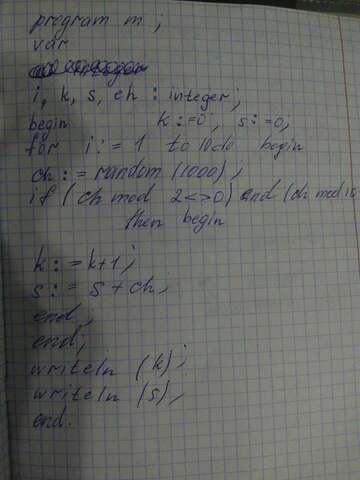 program m ;
var
i, k, s, ch : integer;
begin k:=0; s:=0;
for i:= 1 to 10 do begin
ch := random (1000);
if (ch mod 2<>0) and (ch mod 10
then begin
k:=k+1;
s:= s + ch;
end;
end;
writeln (k);
writeln (s);
end.